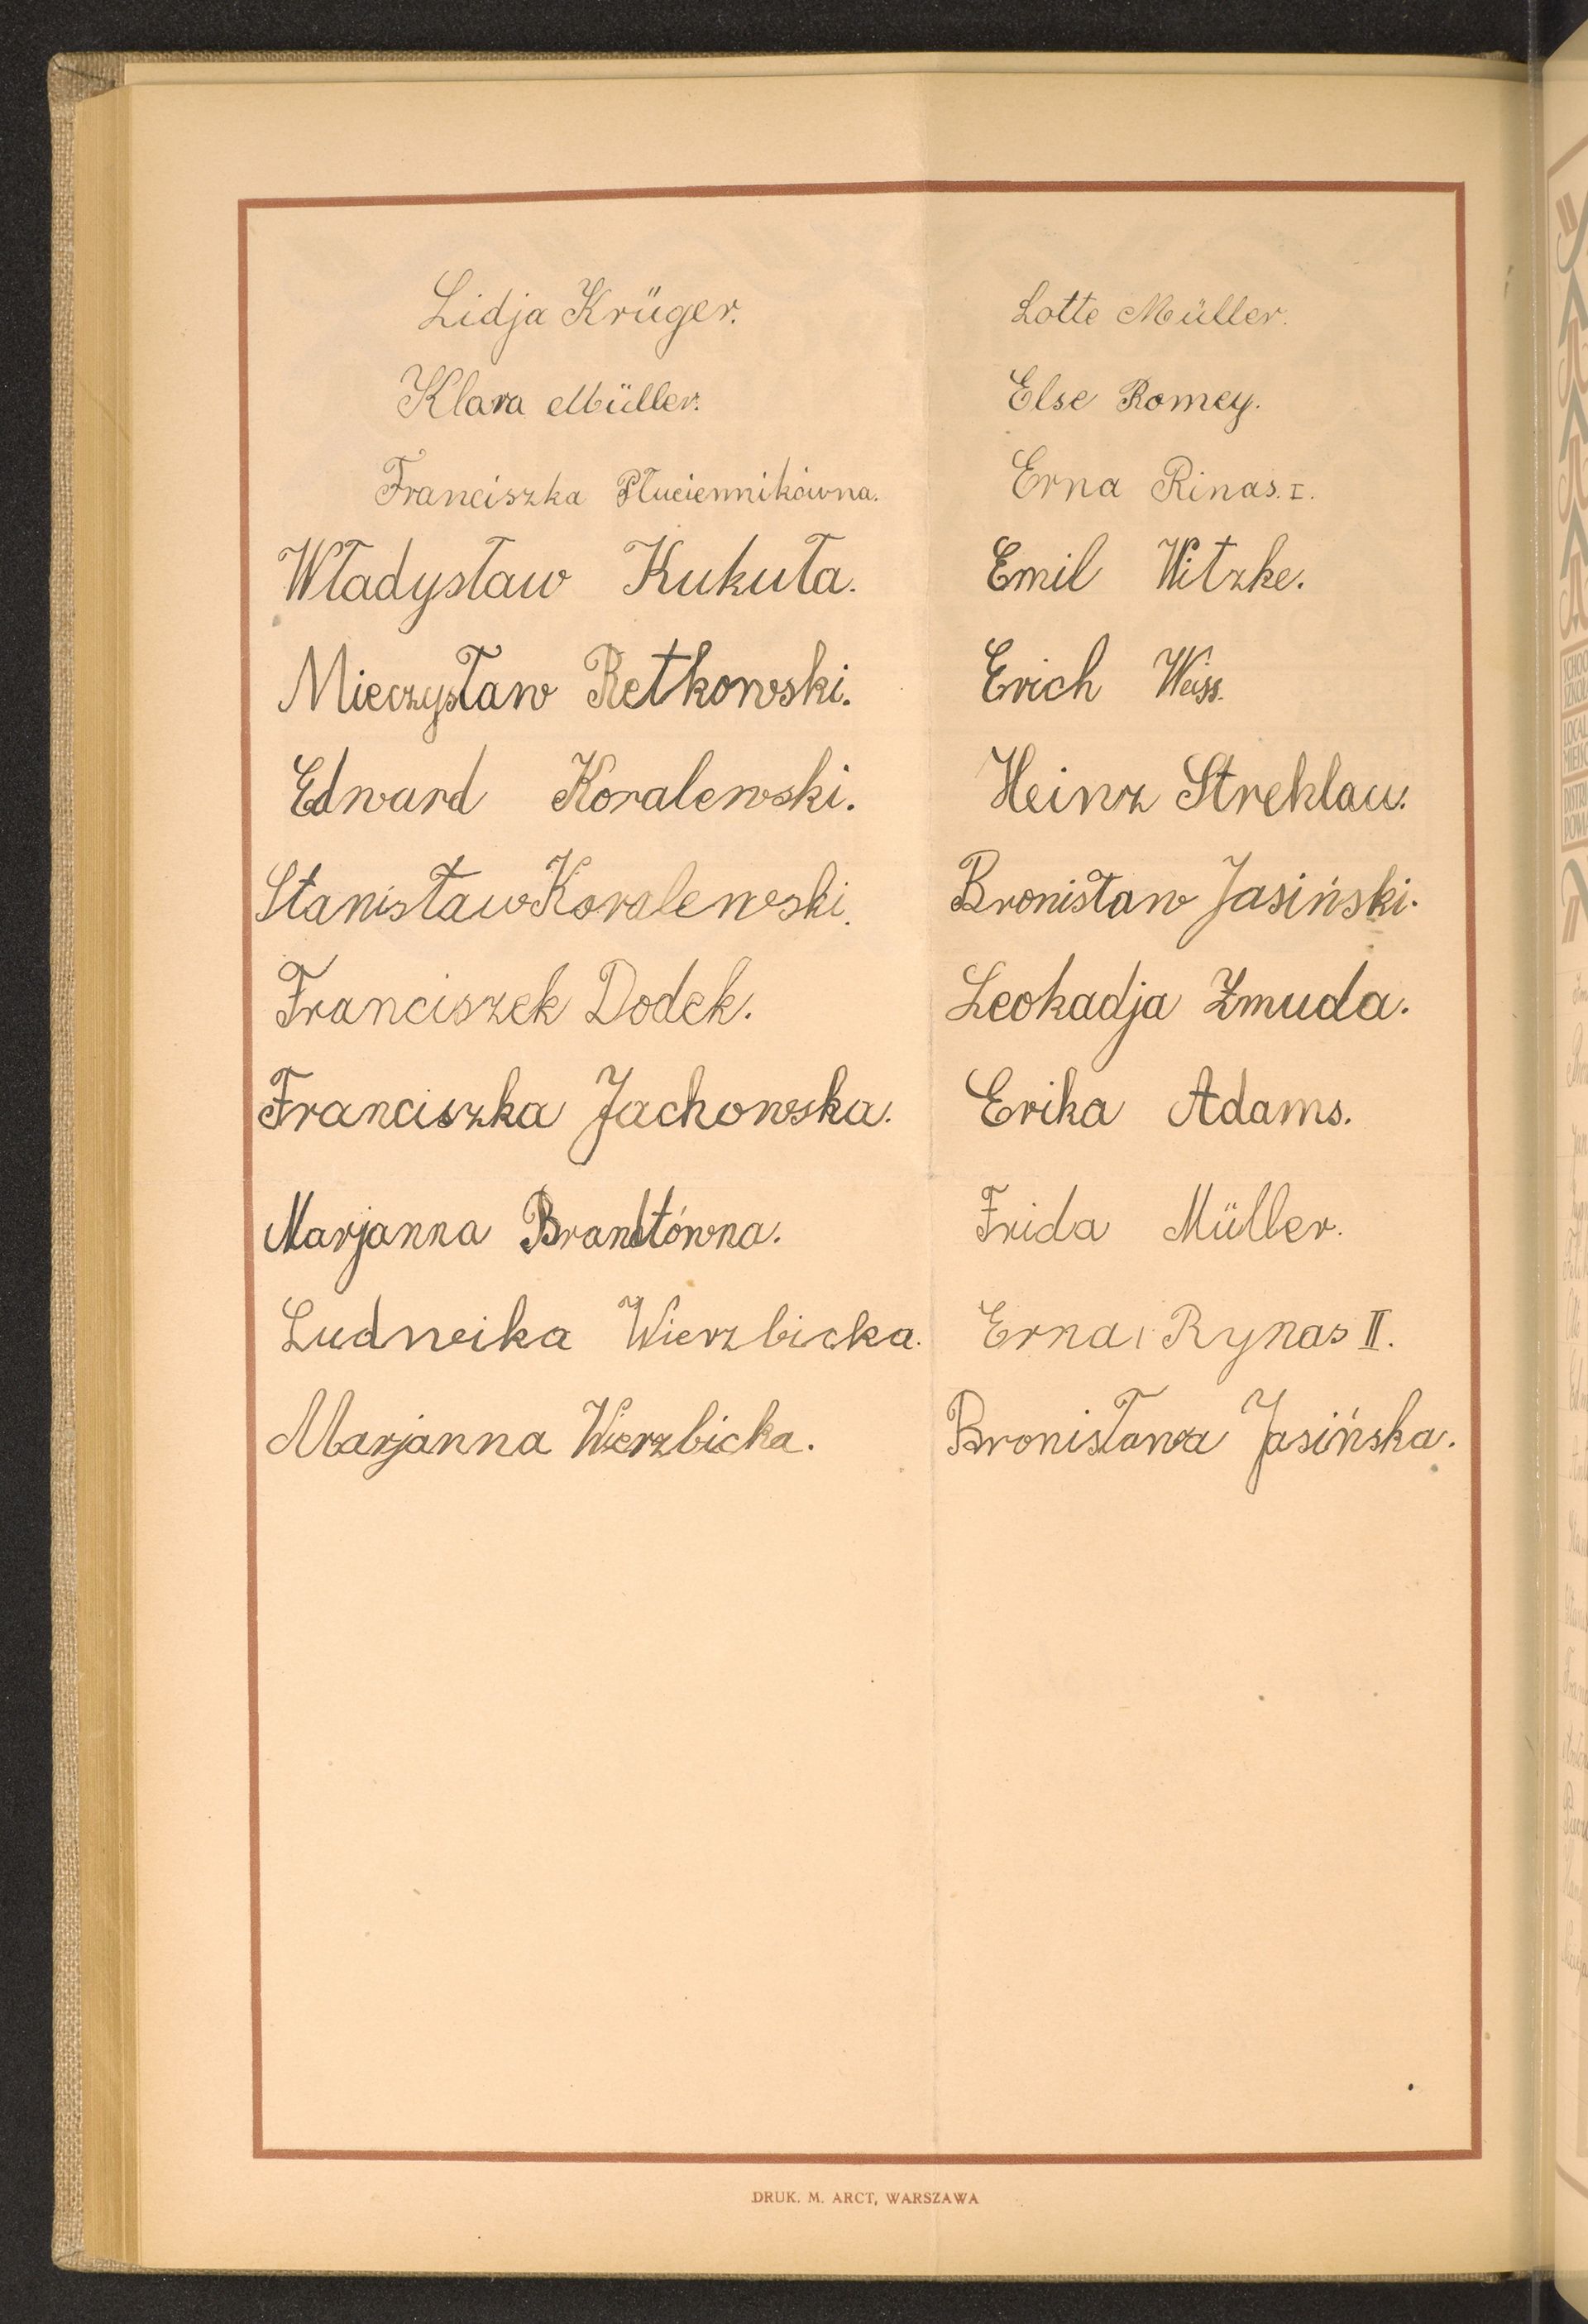 Lidja Krüger.
Klara Müller.
Franciszka Płuciennikówna.
Władysław Kukuła.
Mieczysław Retkowski.
Edward Koralewski.
Stanisław Koralewski.
Franciszek Dodek.
Franciszka Jachowska.
Marjanna Brandtówna.
Ludwika Wierzbicka.
Marjanna Wierzbicka.
Lotte Müller.
Else Romey.
Erna Rinas. I.
Emil Witzke.
Erich Weiss.
Heinz Strehlau.
Bronisław Jasiński.
Leokadja Żmuda.
Erika Adams.
Frida Müller.
Erna Rynas II.
Bronisława Jasińska.
DRUK. M. ARCT, WARSZAWA